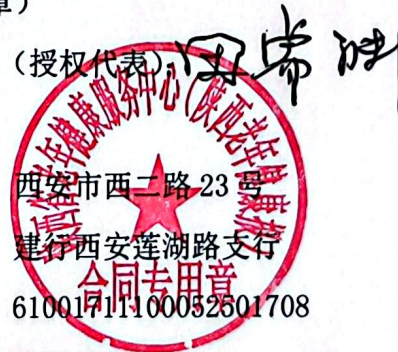 章）
（授权代表）：
陕西省老年健康服务中心（陕西老年健康报）
西安市西二路 23 号
建行西安莲湖路支行
合同专用章
61001711100052501708